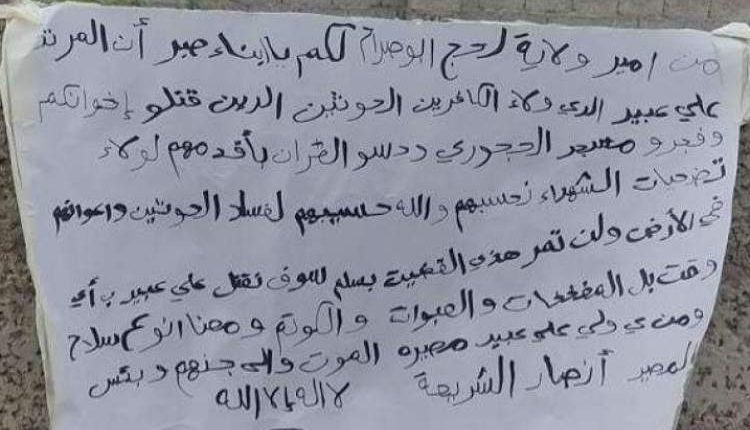 من امير ولاية لحج ابوصرام لكم يا ابناء صبر أن المرتد
علي عبيد الذي ولاء الكافرين الحوثين الذين قتلو إخوانكم
وفجرو مسجد الحجوري ودسو القران بأقدمهم لولاء
تضحيات الشهداء نحسبهم والله حسيبهم لفساد الحوثين واعوانهم
في الأرض ولن تمر هذي القضية بسلم سوف نقتل علي عبيد بأي
وقت بل المفخخات والعبوات والكوتم ومعنا انوع سلاح
ومن ولي علي عبيد مصيره الموت والى جنهم وبئس
المصير أنصار الشريعة لا اله إلا الله